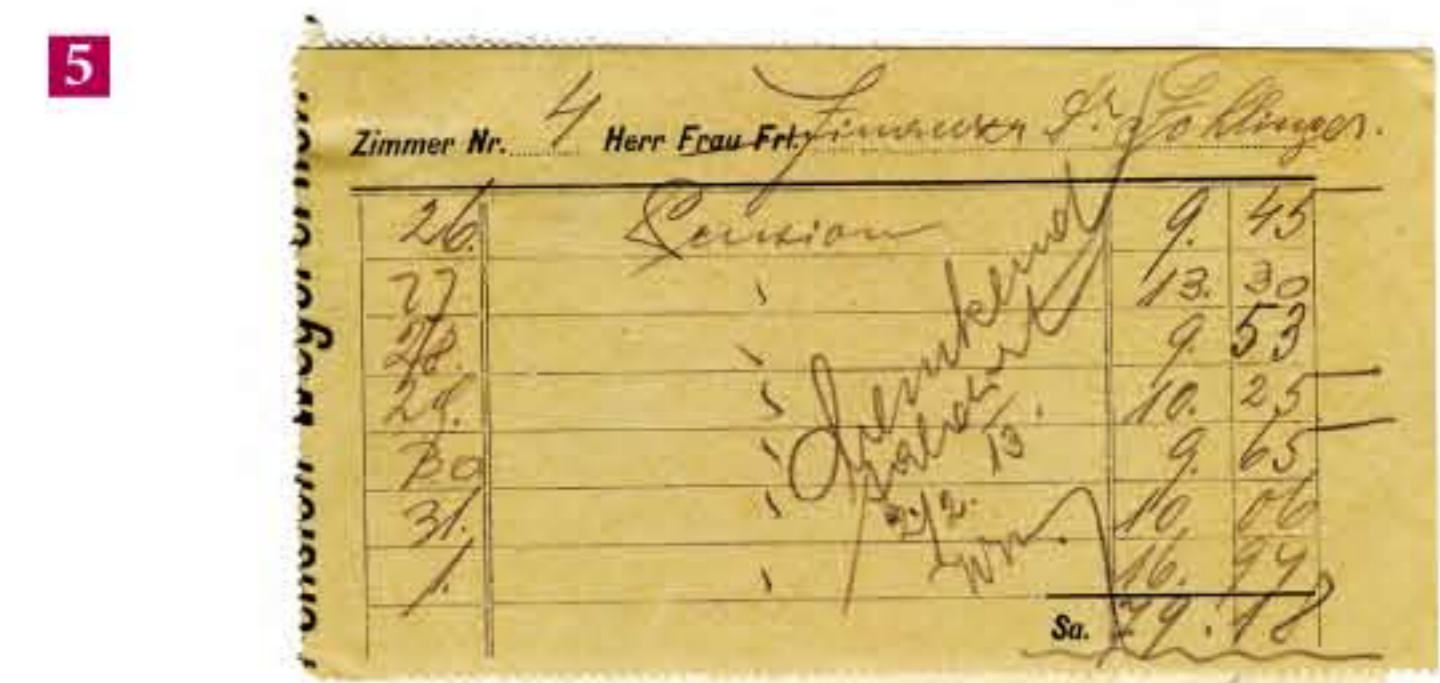 5
Zimmer Nr. 4 Herr Frau Frl. Dr.
26. Pension 9. 45
27 " 13. 30
28. " 9. 53
29. " 10. 25
30 " 9. 65
31. " 10. 06
1. " 16. 94
Sa. 79. 18
dankend
2/2. 13.